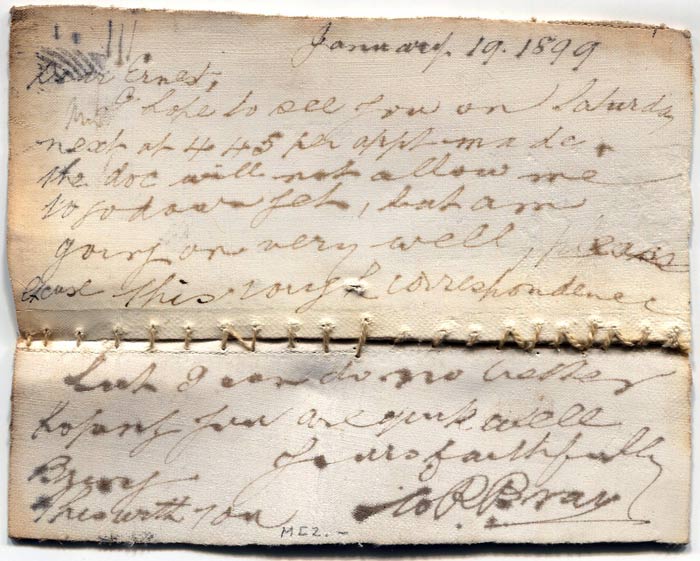 January 19. 1899
Dear Ernest,
I hope to see you on Saturday
next at 4 45 per appt made.
the doc will not allow me
to go down yet, but am
going on very well, please
excuse this rough correspondence
but I can do no better
hoping you are quite well
Yours faithfully
Bring
this with you
W R Bray
MEZ.-